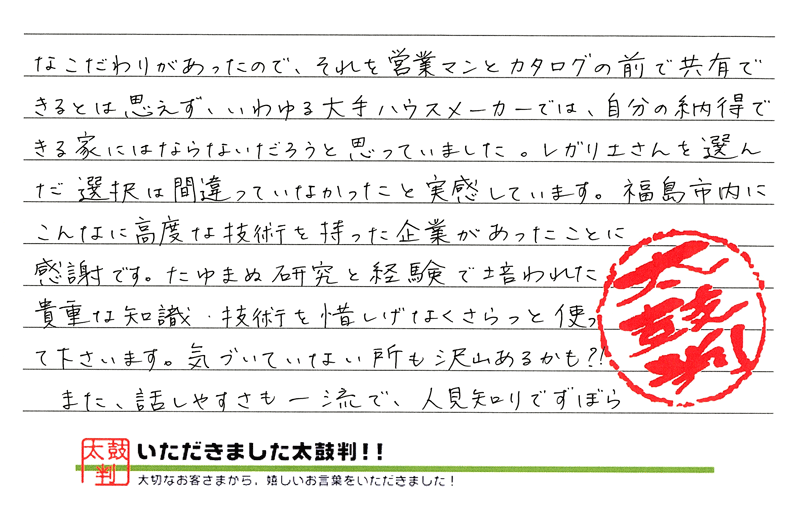 なこだわりがあったので、それを営業マンとカタログの前で共有で
きるとは思えず、いわゆる大手ハウスメーカーでは、自分の納得で
きる家にはならないだろうと思っていました。レガリエさんを選ん
だ選択は間違っていなかったと実感しています。福島市内に
こんなに高度な技術を持った企業があったことに
感謝です。たゆまぬ研究と経験で培われた
貴重な知識・技術を惜しげなくさらっと使っ
て下さいます。気づいていない所も沢山あるかも?!
また、話しやすさも一流で、人見知りでずぼら
太鼓判
太鼓判
いただきました太鼓判!!
大切なお客さまから、嬉しいお言葉をいただきました!